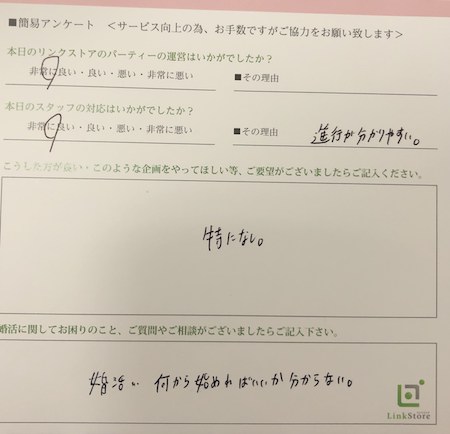 ■簡易アンケート <サービス向上の為、お手数ですがご協力をお願い致します>
本日のリンクストアのパーティーの運営はいかがでしたか?
非常に良い・良い・悪い・非常に悪い ■その理由
本日のスタッフの対応はいかがでしたか?
非常に良い・良い・悪い・非常に悪い ■その理由 進行が分かりやすい。
こうした方が良い・このような企画をやってほしい等、ご要望がございましたらご記入ください。
特になし。
婚活に関してお困りのこと、ご質問やご相談がございましたらご記入下さい。
婚活い 何から始めればいいか分からない。
LinkStore